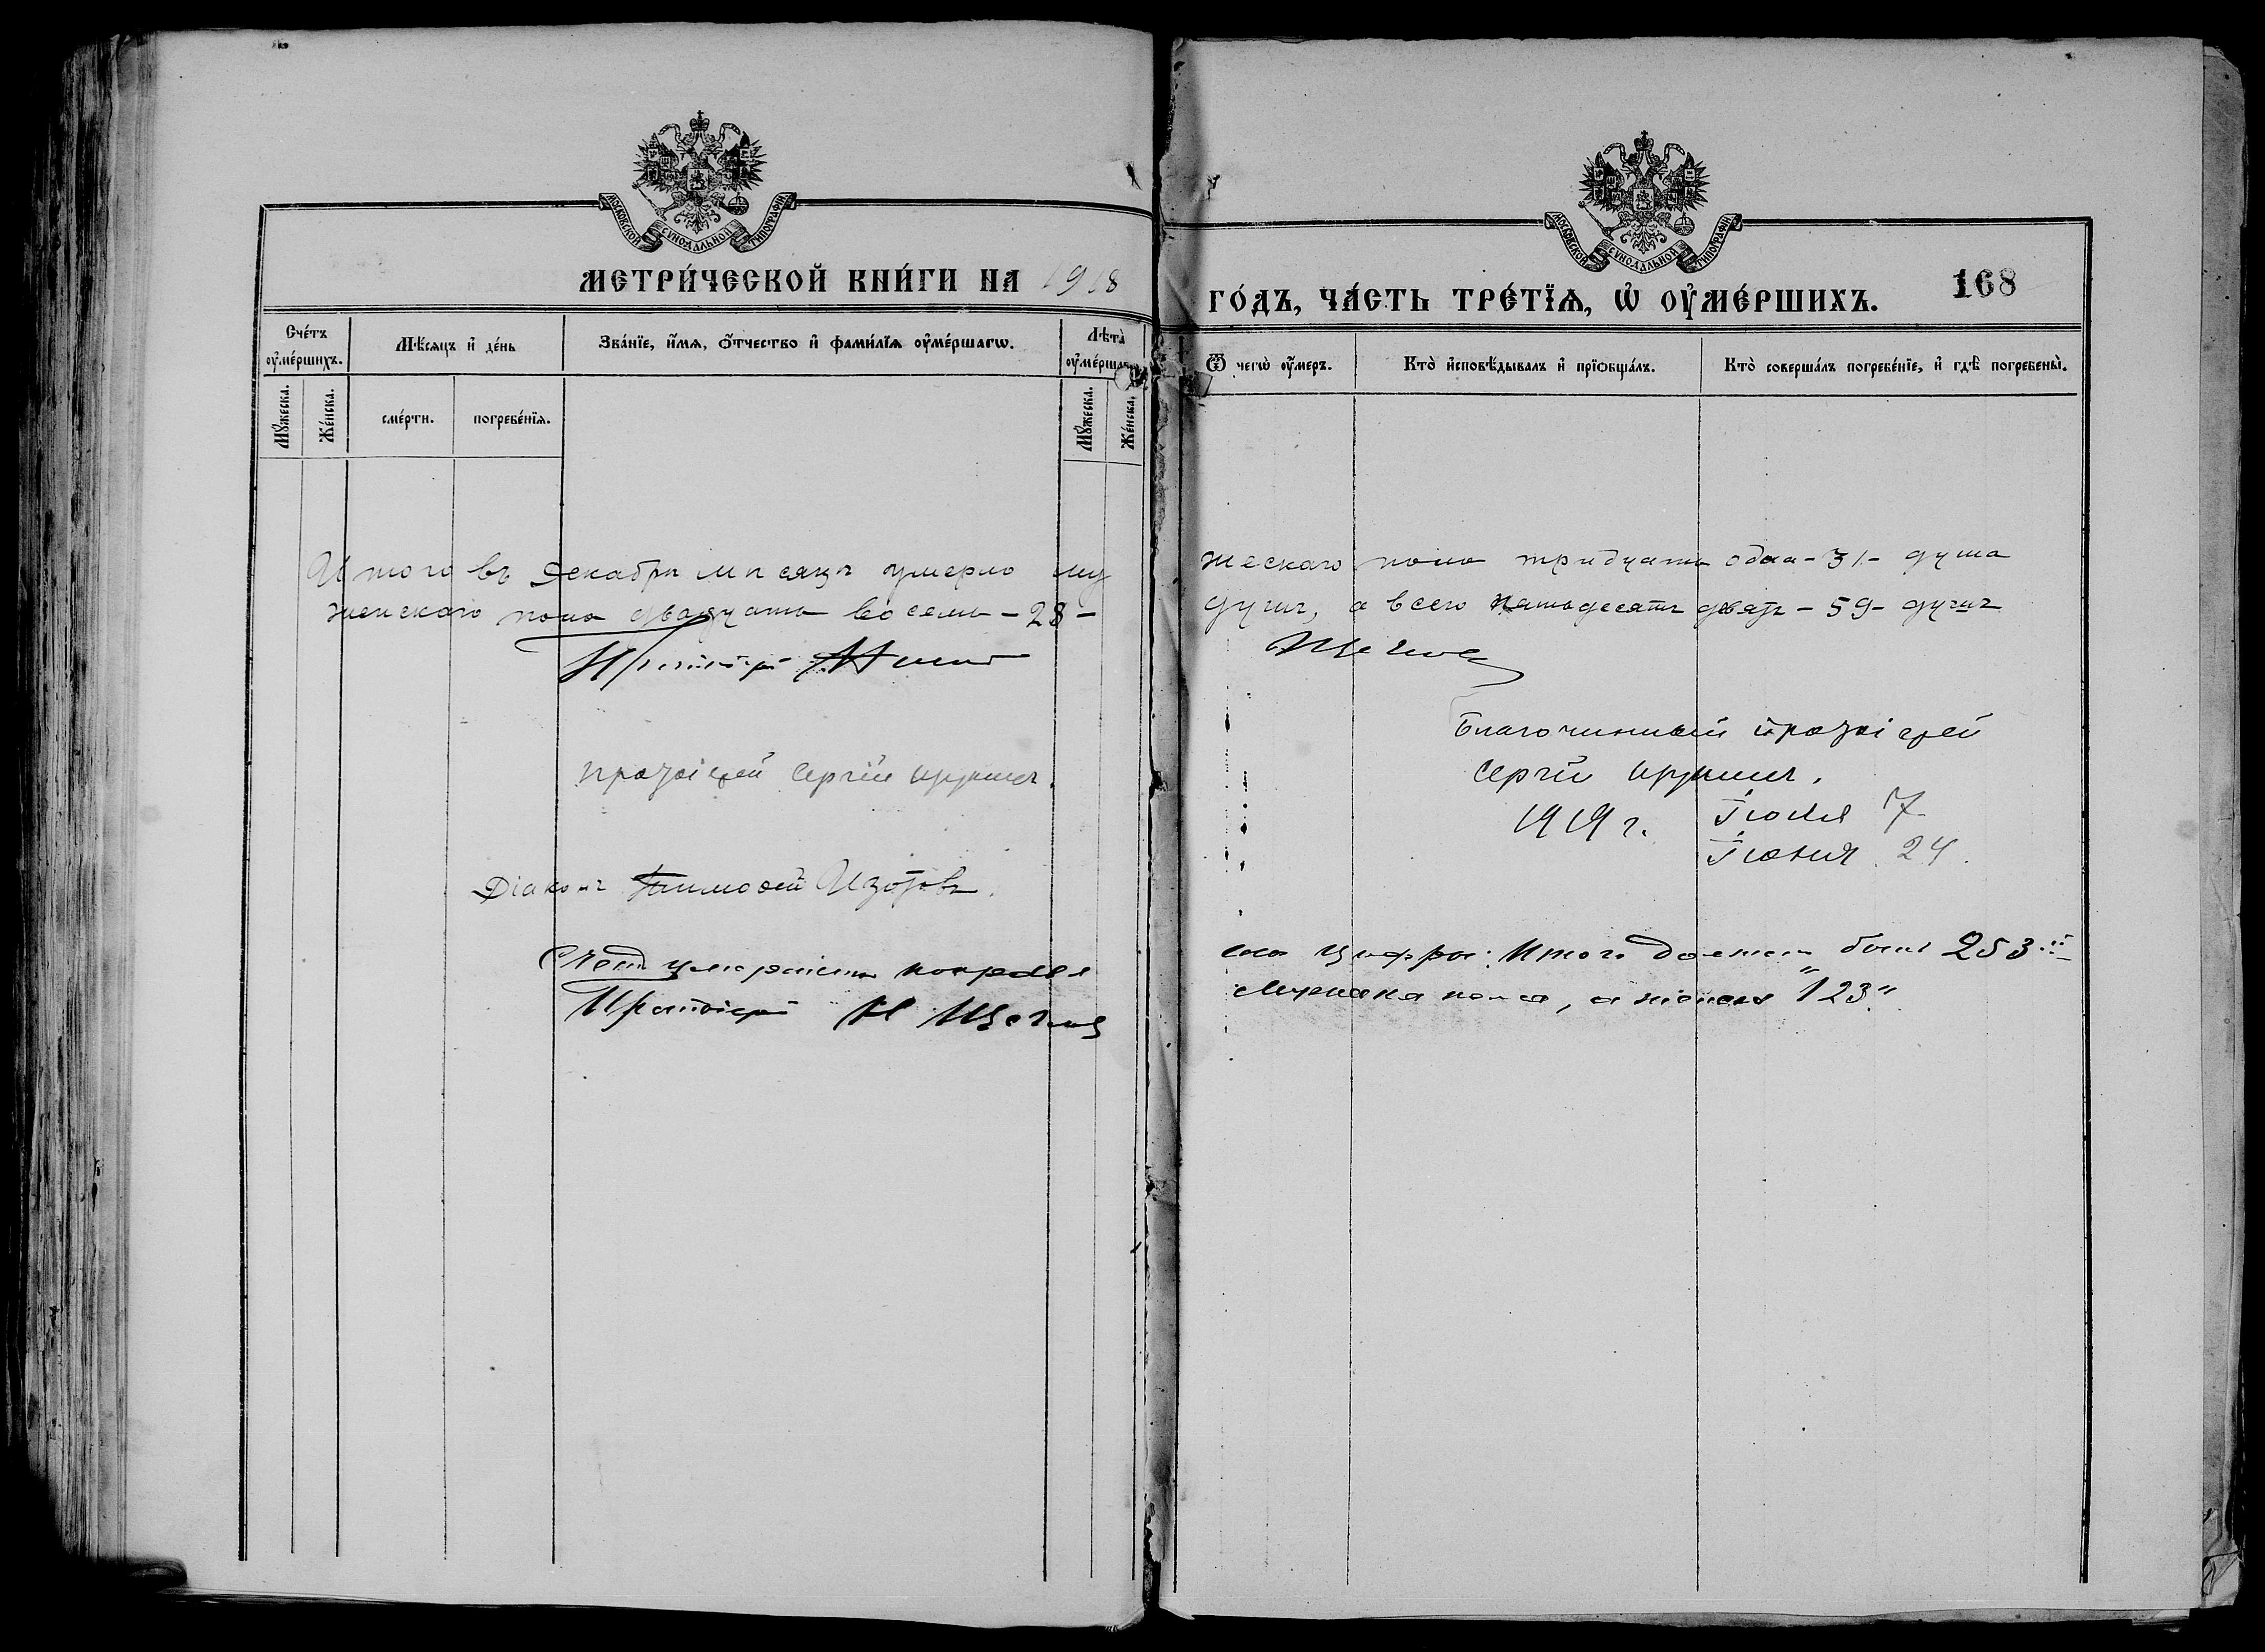 МОСКОВСКОЙ СѴНОДАЛЬНОЙ ТИПОГРАФІИ
МЕТРИ́ЧЕСКОЙ КНИ́ГИ НА 1918
Сче́тъ ѹ҆ме́ршихъ.
Мѣ́сѧцъ и҆ де́нь
Зва́нїе, и҆́мѧ, ѻ҆́тчество и҆ фами́лїѧ ѹ҆ме́ршагѡ.
Лѣта̀
Мꙋ́жеска.
Же́нска.
сме́рти.
погребе́нїѧ.
Мꙋ́жеска.
Же́нска.
Итого въ Декабрѣ мѣсяцѣ умерло му
женскаго пола двадцать восемь - 28 -
протоіерей Сергій
Діаконъ Тимофей Изотовъ.
Протоіерей Н Щеглов
МОСКОВСКОЙ СѴНОДАЛЬНОЙ ТИПОГРАФІИ
168
ГО́ДЪ, ЧА́СТЬ ТРЕ́ТЇѦ, Ѡ҆ ОУ҆МЕ́РШИХЪ.
Ѿ чегѡ̀ ѹ҆́меръ.
Кто̀ и҆сповѣ́дывалъ и҆ прїѻбща́лъ.
Кто̀ соверша́лъ погребе́нїе, и҆ гдѣ̀ погребены̀.
жескаго пола тридцать одна - 31 - душа
душъ, а всего пятьдесятъ девять - 59 - душъ
Щеглов
Благочинный протоіерей
Сергій
1919 г. Іюля 7
Іюня 24.
цифра: Итого должно быть 253
мужска пола, а женска "123"